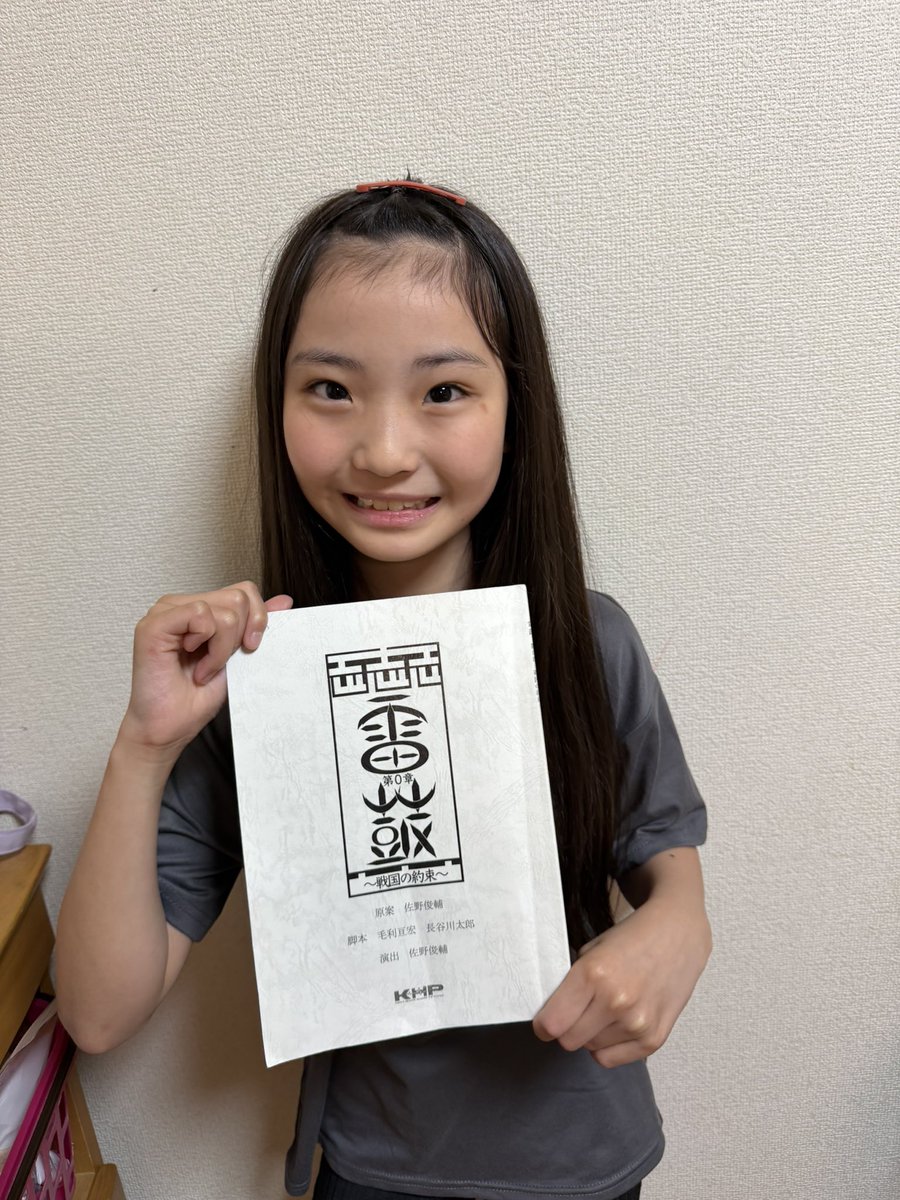 雷鼓
第0章
～戦国の約束～
原案　佐野俊輔
脚本　毛利亘宏　長谷川太郎
演出　佐野俊輔
KHP